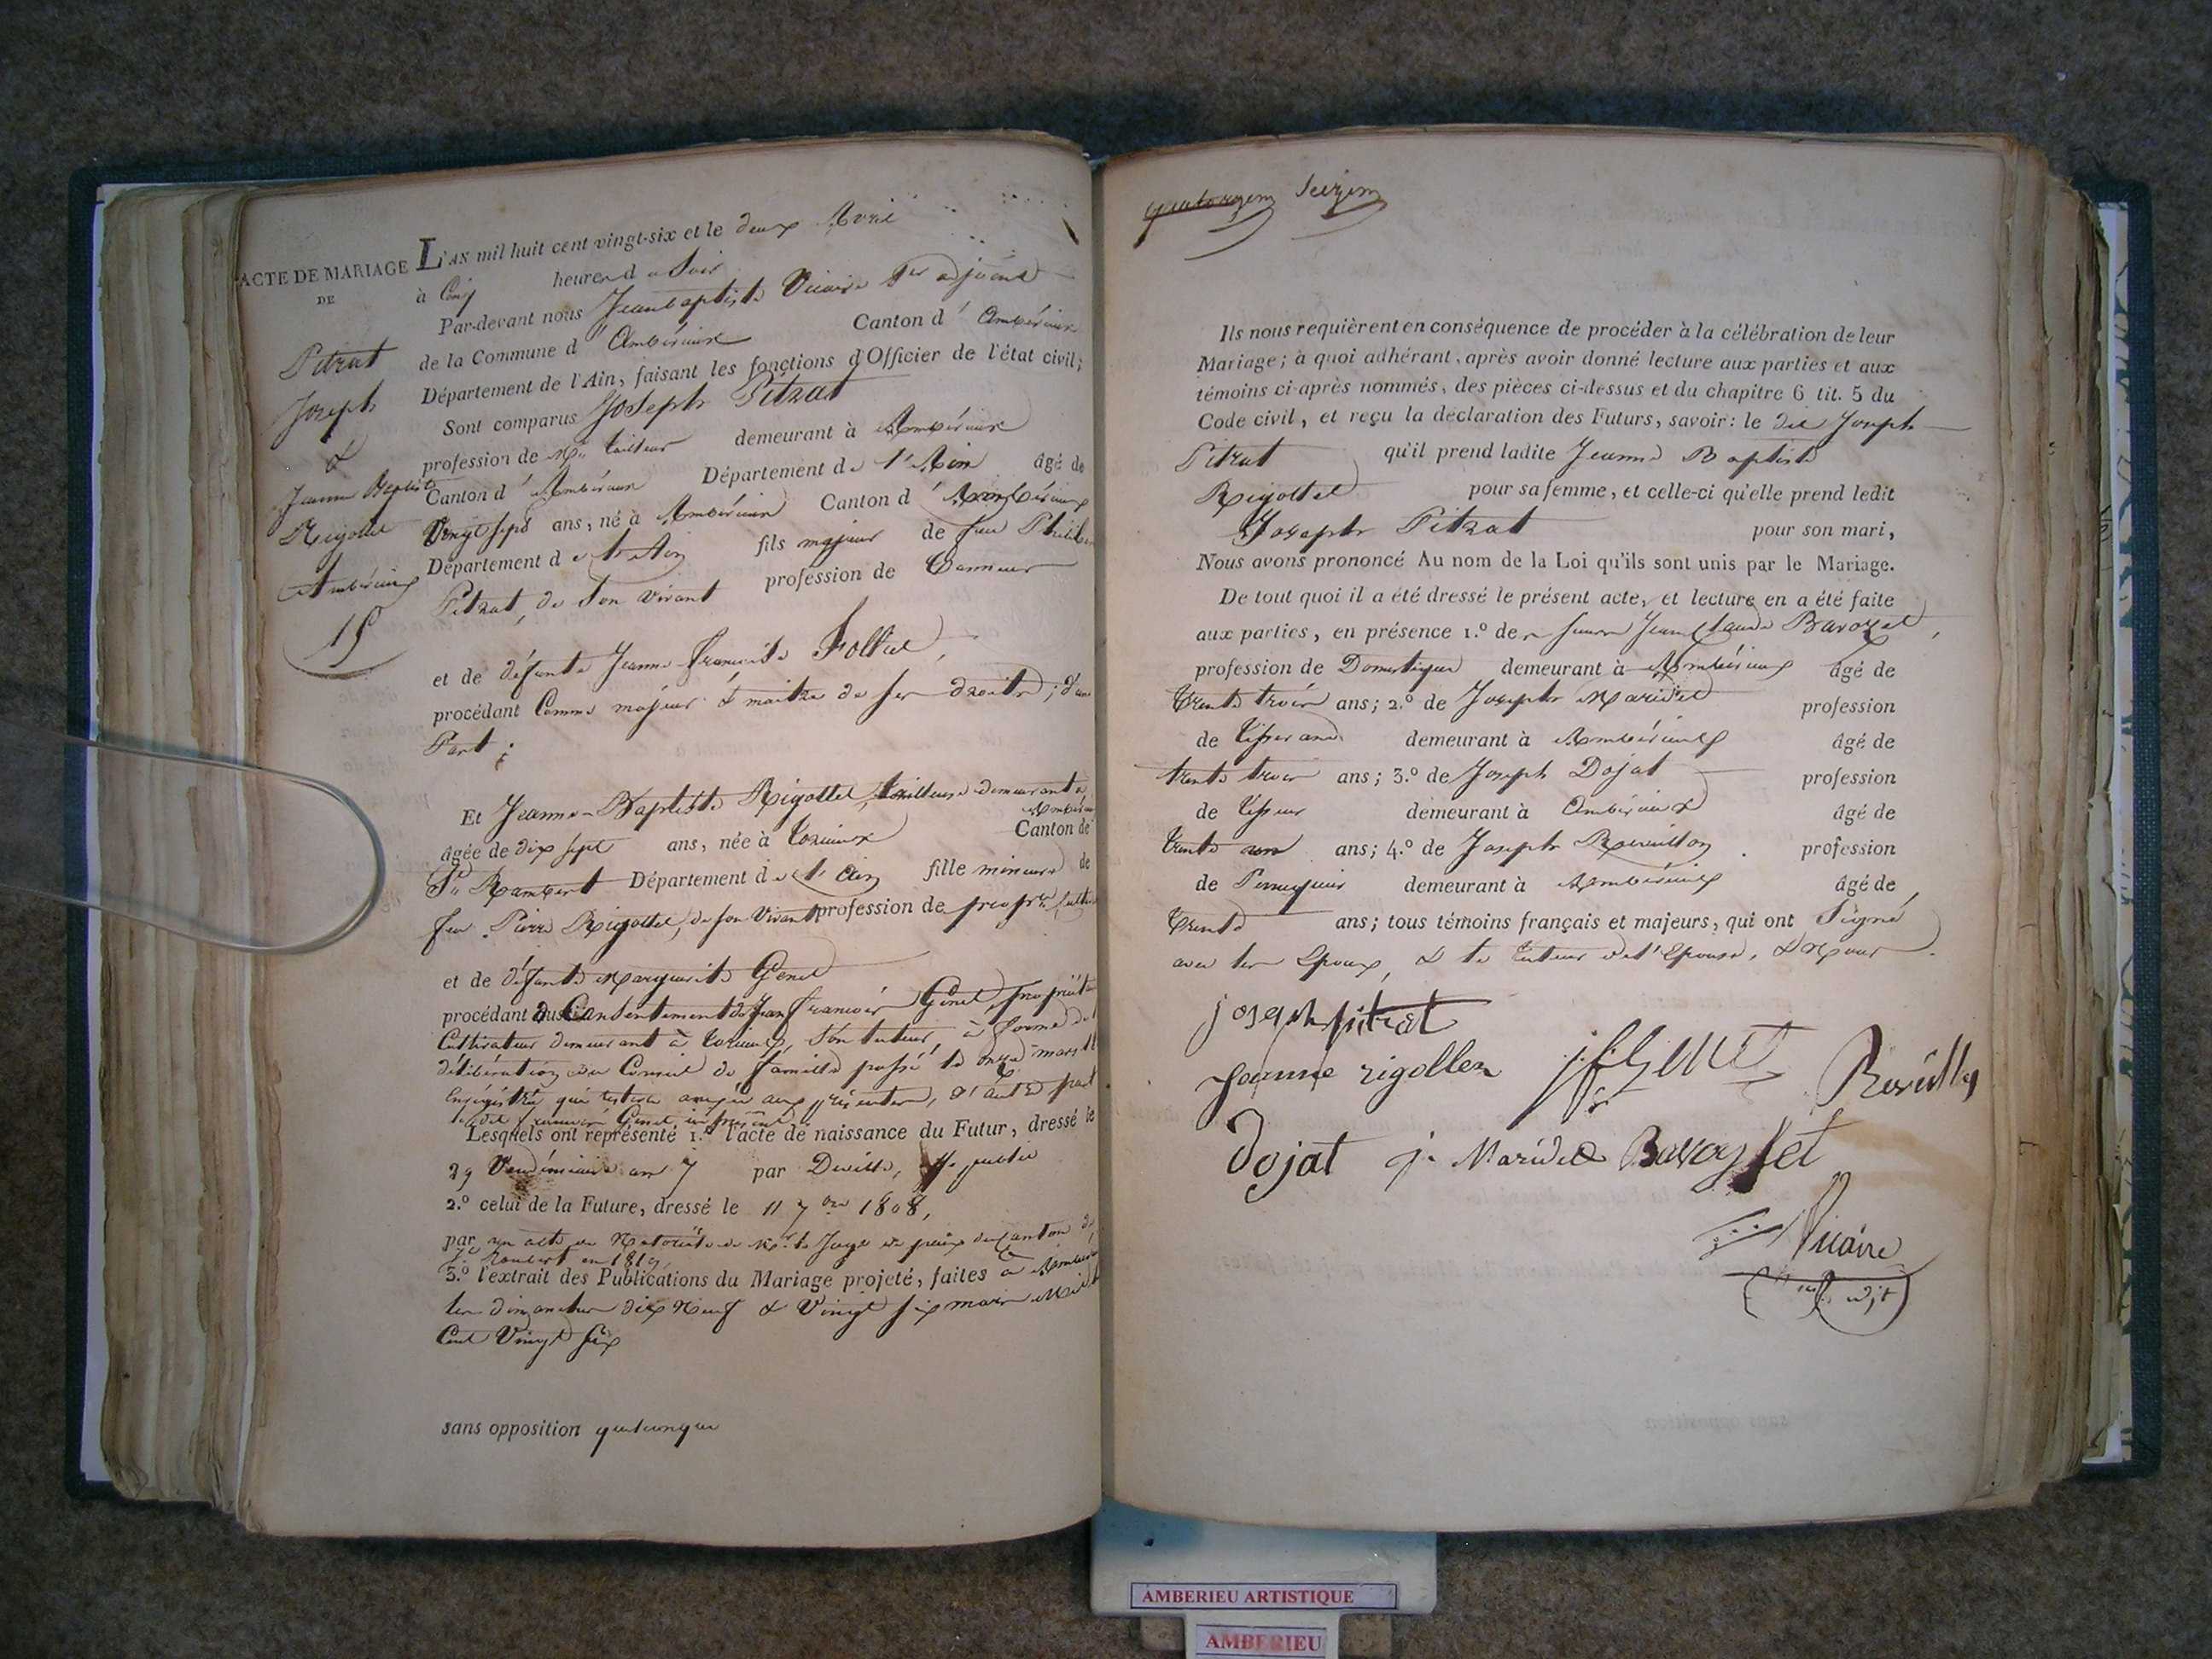 ACTE DE MARIAGE
DE
Pitrat
Joseph
&
Jeanne Baptiste
Rigollet
Ambérieux
15
L'AN mil huit cent vingt-six et le deux Avril
à Cinq heures du Soir
Par-devant nous Jean baptiste Vicaire 1er adjoint
de la Commune d'Ambérieux Canton d'Ambérieux
Département de l'Ain, faisant les fonctions d'Officier de l'état civil;
Sont comparus Joseph Pitrat
profession de Md tailleur demeurant à Ambérieux
Canton d'Ambérieux Département de l'Ain âgé de
Vingt sept ans, né à Ambérieux Canton d'Ambérieux
Département de l'Ain fils majeur de feu Philibert
Pitrat, de son vivant profession de
et de défunte Jeanne françoise Folliet,
procédant Comme majeur & maitre de ses droits; d'une
Part;
Et Jeanne-Baptiste Rigollet, tailleuse demeurant à
Ambérieux
âgée de dix sept ans, née à Torcieux Canton de
St Rambert Département de l'Ain fille mineure de
feu Pierre Rigollet, de son Vivant profession de propre cultiv
et de défunte Marguerite Genet
procédant du Consentement de Jean francois Genet, propriétaire
Cultivateur demeurant à Torcieux, son tuteur, à forme de
délibération du Conseil de famille passé le onze mars
Enrégistré qui restera annéxée aux présentes, d'autre part
ledit francois Genet ici présent
Lesquels ont représenté 1.º l'acte de naissance du Futur, dressé le
29 Vendémiaire an 7 par Deville, off. public
2.º celui de la Future, dressé le 11 7bre 1808,
par un acte de Notoriété de Mr le Juge de paix du Canton de
St Rambert en 1819,
3.º l'extrait des Publications du Mariage projeté, faites à Ambérieux
les dimanches dix Neuf & Vingt six mars Mil huit
Cent Vingt six
sans opposition quelconque
quatorzem seizem
Ils nous requièrent en conséquence de procéder à la célébration de leur
Mariage; à quoi adhérant, après avoir donné lecture aux parties et aux
témoins ci-après nommés, des pièces ci-dessus et du chapitre 6 tit. 5 du
Code civil, et reçu la déclaration des Futurs, savoir: le dit Joseph
Pitrat qu'il prend ladite Jeanne Baptiste
Rigollet pour sa femme, et celle-ci qu'elle prend ledit
Joseph Pitrat pour son mari,
Nous avons prononcé Au nom de la Loi qu'ils sont unis par le Mariage.
De tout quoi il a été dressé le présent acte, et lecture en a été faite
aux parties, en présence 1.º de Jean Claude Bavozet,
profession de Domestique demeurant à Ambérieux âgé de
Trente trois ans; 2.º de Joseph Maridet profession
de Tisserand demeurant à Ambérieux âgé de
trente trois ans; 3.º de Joseph Dojat profession
de Tisseur demeurant à Ambérieux âgé de
Trente un ans; 4.º de Joseph Révillon profession
de Perruquier demeurant à Ambérieux âgé de
Trente ans; tous témoins français et majeurs, qui ont Signé
avec les Epoux, & le tuteur de l'Epouse, & Nous.
joseph pitrat
jeanne rigollet
jf Genet
Révillon
dojat j. Maridet Bavozet
Vicaire
1er adjt
AMBERIEU ARTISTIQUE
AMBERIEU